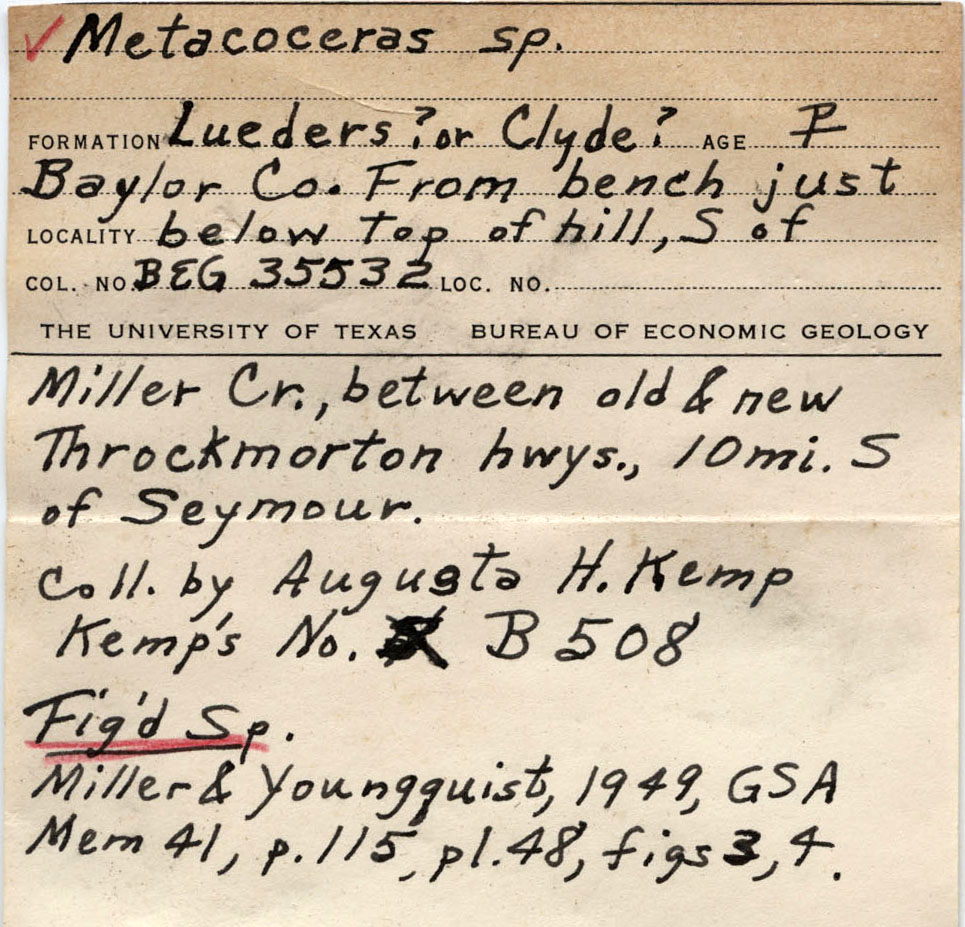 ✓ Metacoceras sp.
FORMATION Lueders? or Clyde? AGE P
Baylor Co. From bench just
LOCALITY below top of hill, S of
COL. NO. BEG 35532 LOC. NO.
THE UNIVERSITY OF TEXAS BUREAU OF ECONOMIC GEOLOGY
Miller Cr., between old & new
Throckmorton hwys., 10mi. S
of Seymour.
Coll. by Augusta H. Kemp
Kemp's No. B 508
Fig'd Sp.
Miller & Youngquist, 1949, GSA
Mem 41, p.115, pl.48, figs 3,4.